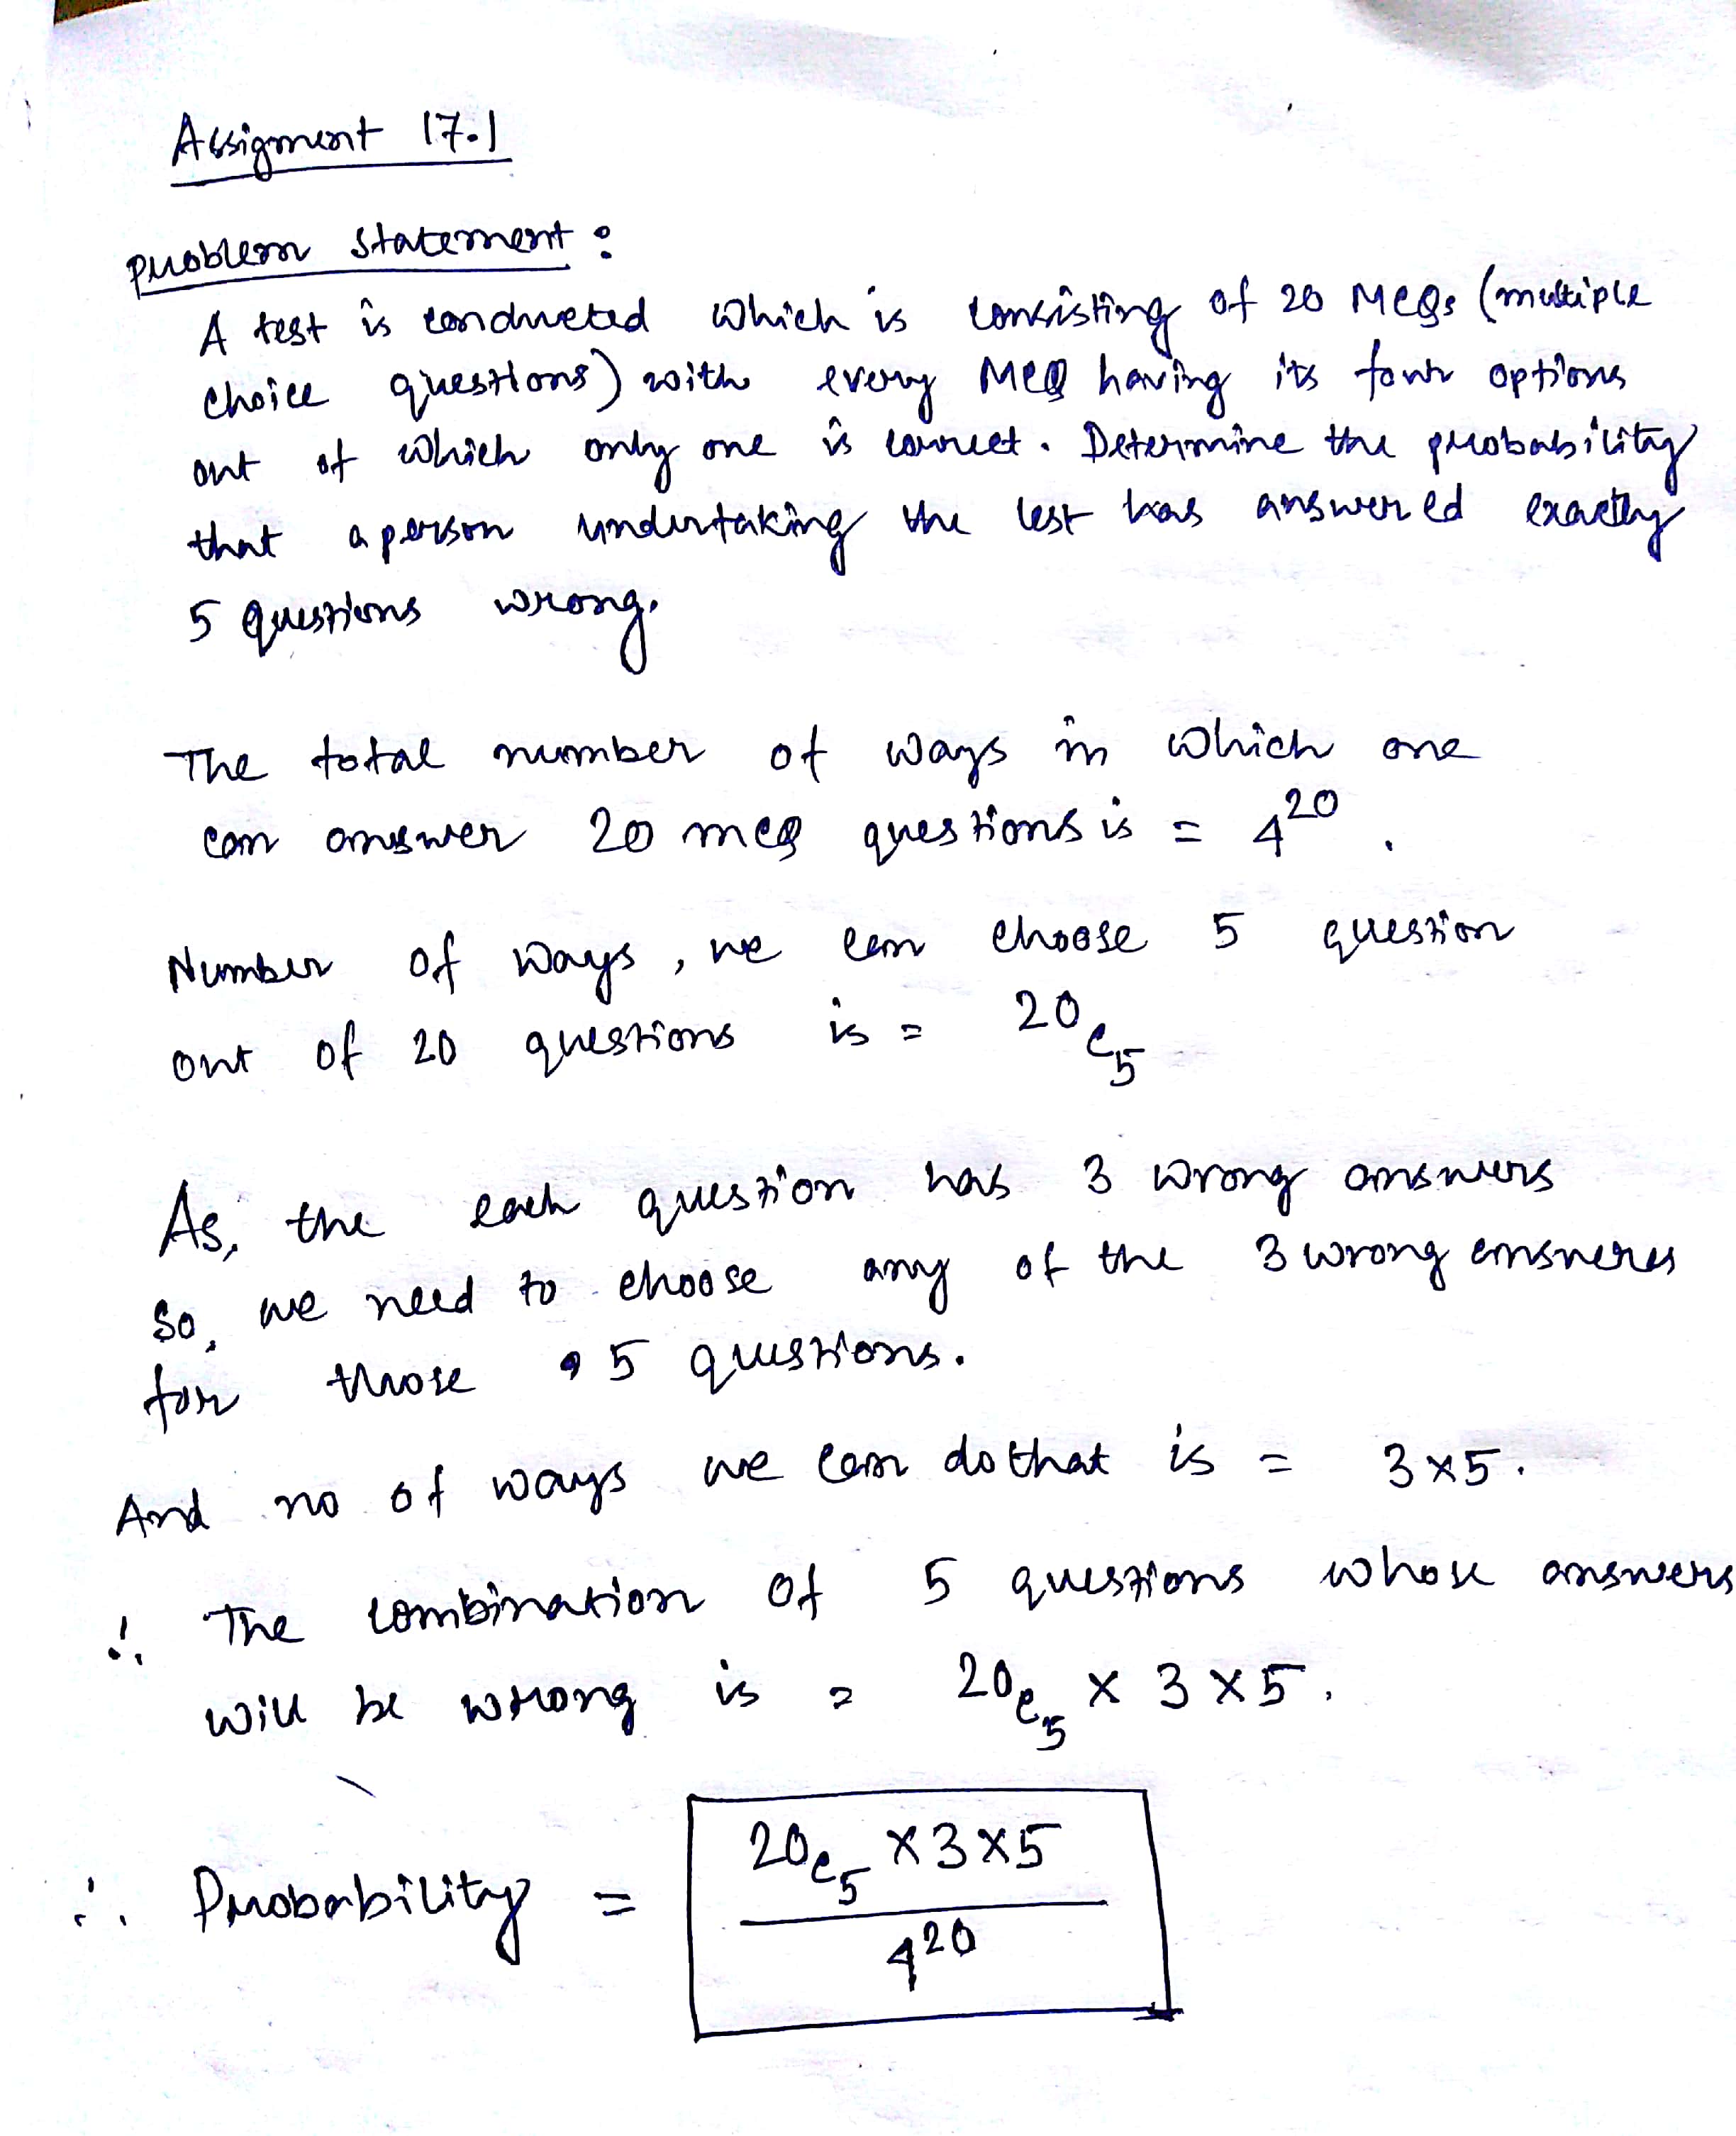 Assigment 17.1
problem statement :
A test is conducted which is consisting of 20 MCQs (multiple
choice questions) with every MCQ having its four options
out of which only one is correct. Determine the probability
that a person undertaking the test has answered exactly
5 questions wrong.
The total number of ways in which one
can answer 20 mcq questions is = 4²⁰.
Number of ways, we can choose 5 question
out of 20 questions is = 20c₅
As, the each question has 3 wrong answers
So, we need to choose any of the 3 wrong answeres
for those 5 questions.
And no of ways we can do that is = 3×5.
∴ The combination of 5 questions whose answers
will be wrong is = 20c₅ × 3 × 5.
∴ Probability = 20c₅ × 3 × 5
4²⁰